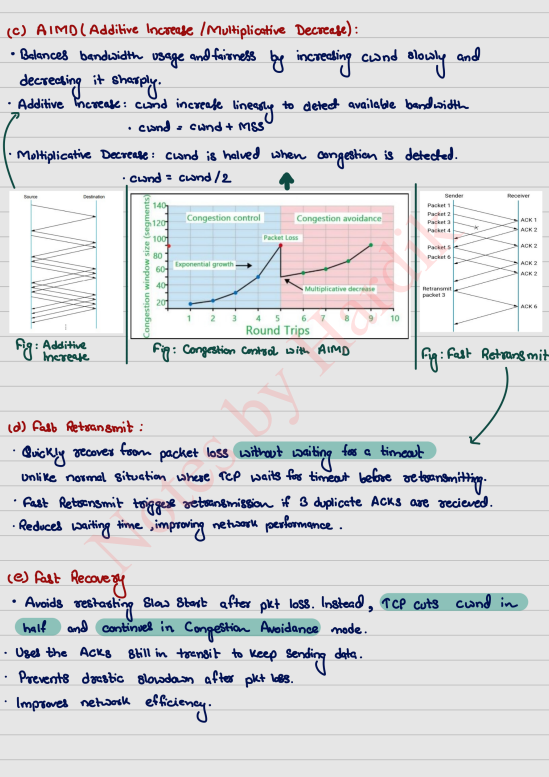 (c) AIMD (Additive Increase / Multiplicative Decrease):
• Balances bandwidth usage and fairness by increasing cwnd slowly and
decreasing it sharply.
• Additive Increase: cwnd increase linearly to detect available bandwidth
• cwnd = cwnd + MSS
• Multiplicative Decrease: cwnd is halved when congestion is detected.
• cwnd = cwnd / 2
Source Destination
Fig: Additive
Increase
Congestion window size (segments)
140
120
100
80
60
40
20
Congestion control
Congestion avoidance
Packet Loss
Exponential growth
Multiplicative decrease
1 2 3 4 5 6 7 8 9 10
Round Trips
Fig: Congestion Control with AIMD
Sender Receiver
Packet 1
Packet 2
Packet 3
Packet 4
Packet 5
Packet 6
Retransmit
packet 3
ACK 1
ACK 2
ACK 2
ACK 2
ACK 2
ACK 6
Fig: Fast Retransmit
(d) Fast Retransmit:
• Quickly recover from packet loss without waiting for a timeout
unlike normal situation where TCP waits for timeout before retransmitting.
• Fast Retransmit triggers retransmission if 3 duplicate ACKs are recieved.
• Reduces waiting time, improving network performance.
(e) Fast Recovery
• Avoids restarting Slow Start after pkt loss. Instead, TCP cuts cwnd in
half and continues in Congestion Avoidance mode.
• Uses the ACKs still in transit to keep sending data.
• Prevents drastic slowdown after pkt loss.
• Improves network efficiency.
Notes by Hardik